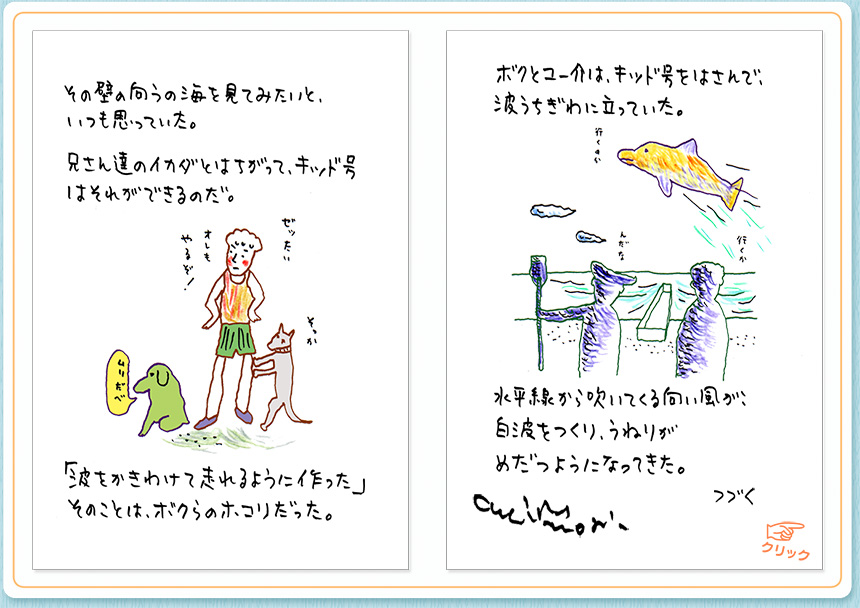 その壁の向うの海を見てみたいと、
いつも思っていた。
兄さん達のイカダとはちがって、キッド号
はそれができるのだ。
ゼッたい
オレも
やるぞ!
そっか
ムリだべ
「波をかきわけて走れるように作った」
そのことは、ボクらのホコリだった。
ボクとユー介は、キッド号をはさんで、
波うちぎわに立っていた。
んだな
行くか
水平線から吹いてくる向い風が、
白波をつくり、うねりが
めだつようになってきた。
つづく
クリック